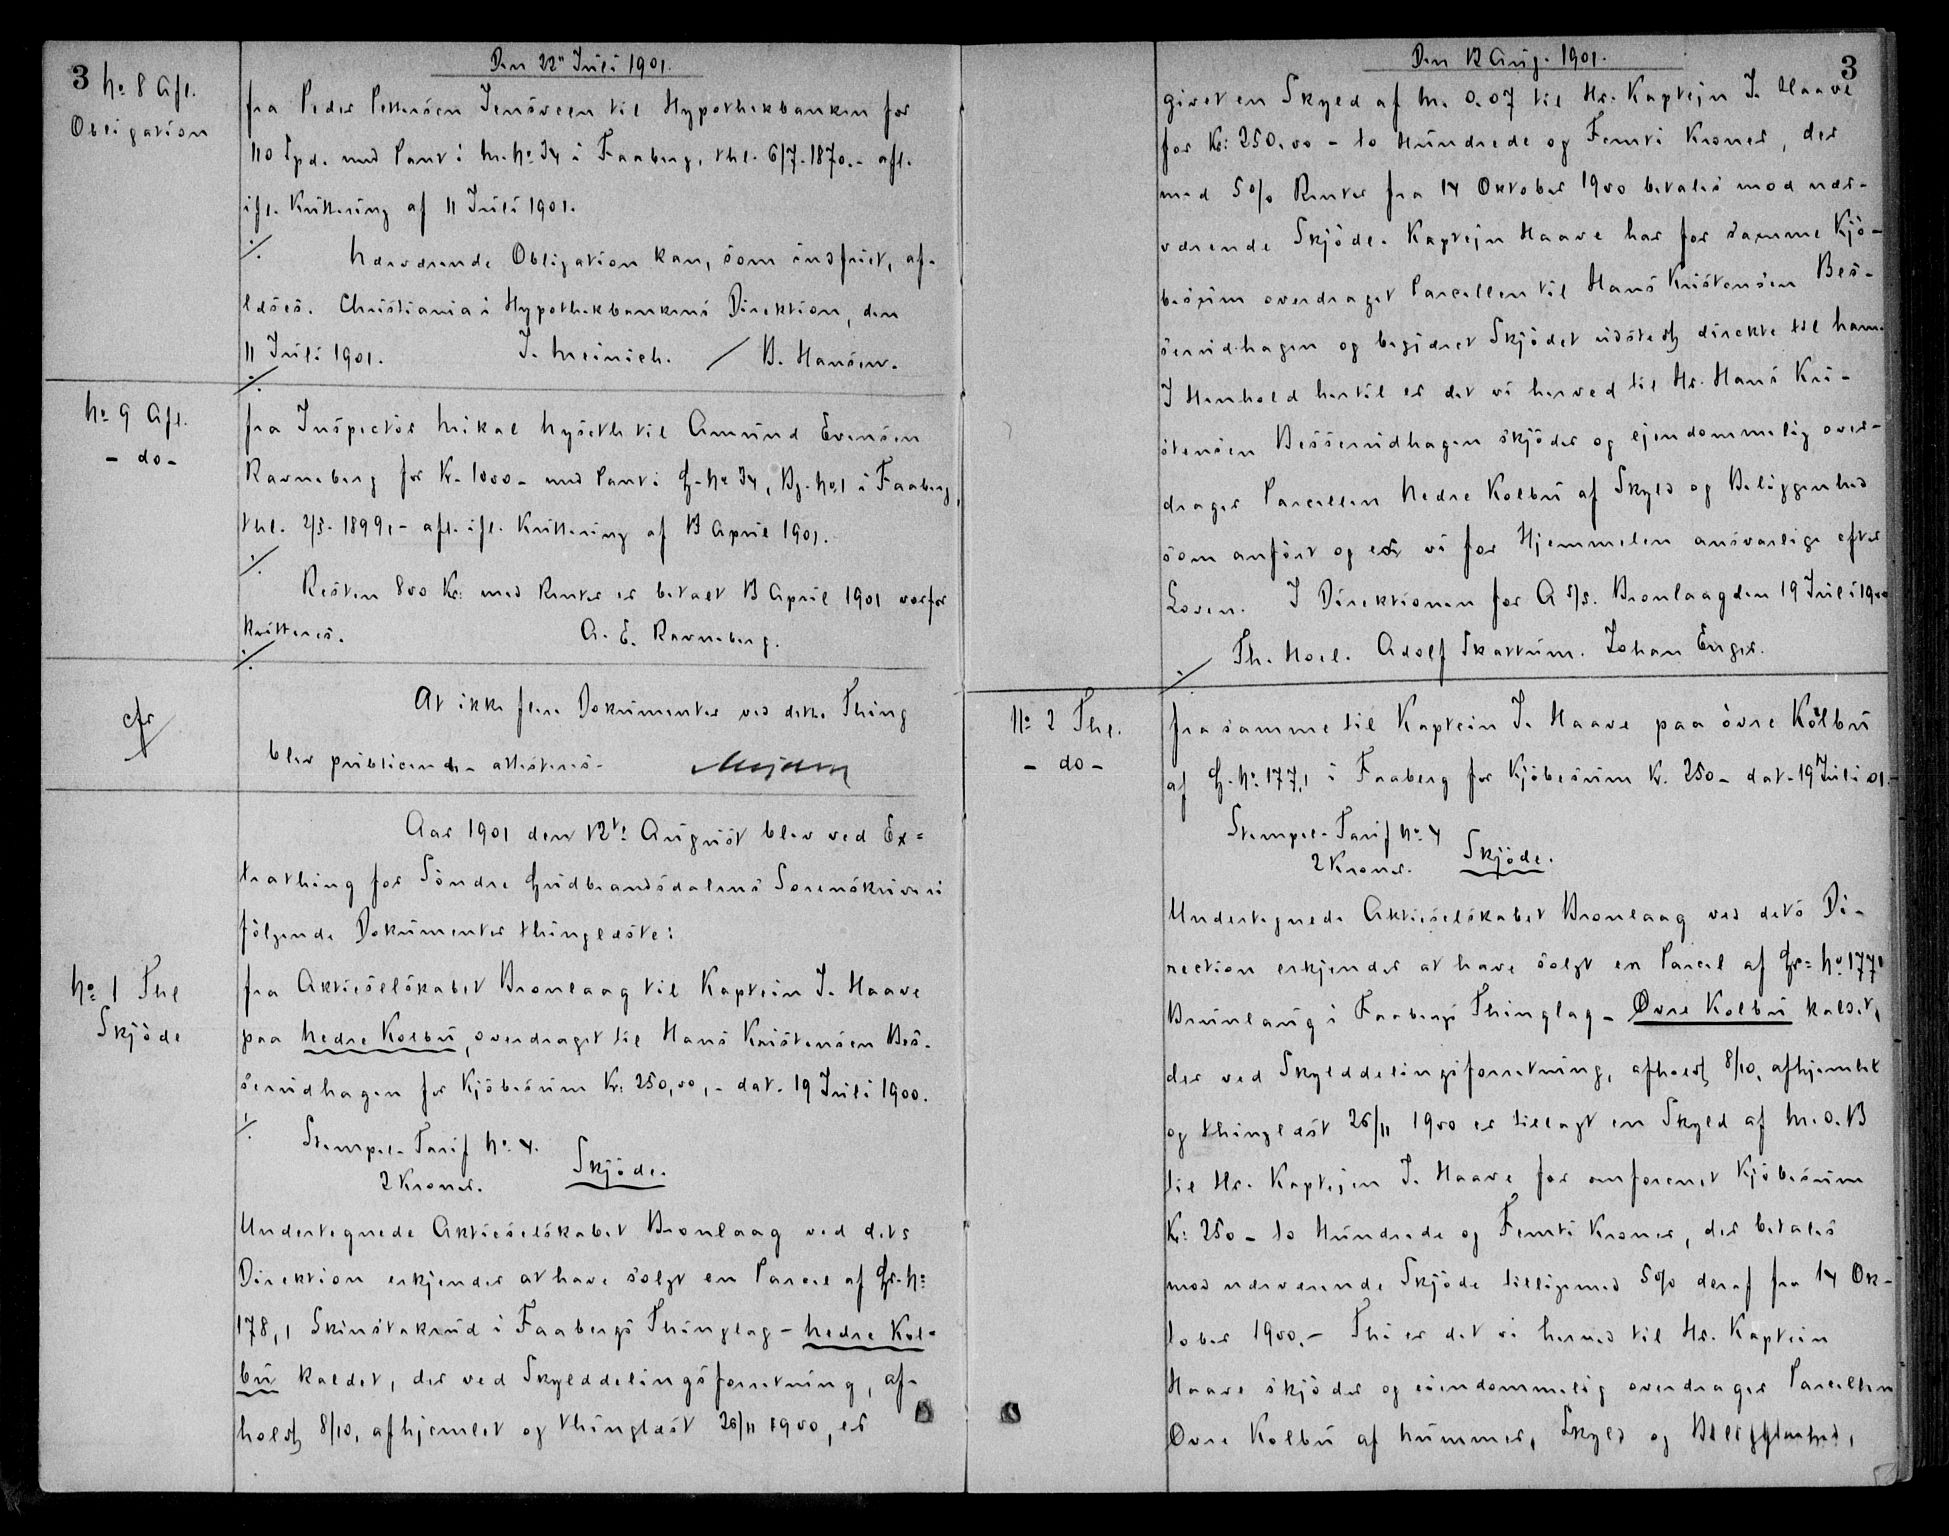 3
Den 22" Juli 1901.
No 8 Afl.
Obligation
fra Peder Pettersen Jensveen til Hypothekbanken for
110 Spd. med Pant i M. No 34 i Faaberg, thl. 6/7-1870.- afl.
ifl. Kvittering af 11 Juli 1901.
./.
Nærværende Obligation kan, som indfriet, af-
læses. Christiania i Hypothekbankens Direktion, den
11 Juli 1901. J. Meinich. / B. Hansen.
./.
No 9 Afl.
- do -
fra Inspectör Mikal Nyseth til Amund Evensen
Ravneberg for Kr. 1000- med Pant i G. No 34, Bg. No 1 i Faaberg,
thl. 2/3-1899,- afl. ifl. Kvittering af 13 April 1901.
./.
Resten 800 Kr. med Renter er betalt 13 April 1901 vorfor
kvitteres. A. E. Ravneberg.
./.
cfr
At ikke flere Dokumenter ved dette Thing
blev publicerede attesteres-
Aar 1901 den 12te August blev ved Ex=
trathing for Söndre Gudbrandsdalens Sorenskriveri
fölgende Dokumenter thinglæste:
No 1 Thl
Skjöde
fra Aktieselskabet Bronlaag til Kaptein J. Haave
paa Nedre Kolbu, overdraget til Hans Kristensen Bes-
serudhagen for Kjöbesum Kr: 250,00,- dat. 19 Juli 1900.
./.
Stempel-Tarif No. 4.
2 Kroner.
Skjöde.
Undertegnede Aktieselskabet Bronlaag ved dets
Direktion erkjender at have solgt en Parcel af Gr. No
178,1 Skinstakrud i Faabergs Thinglag - Nedre Kol-
bu kaldet, der ved Skylddelingsforretning, af-
holdt 8/10, afhjemlet og thinglæst 26/11 1900, er
Den 12 Aug. 1901.
3
givet en Skyld af M. 0.07 til Hr. Kaptejn J. Haave
for Kr: 250.00 - to Hundrede og Femti Kroner, der
med 5% Renter fra 14 Oktober 1900 betales mod nær-
værende Skjöde. Kaptejn Haave har for samme Kjö-
besum overdraget Parcellen til Hans Kristensen Bes-
serudhagen og begjæret Skjödet udstedt direkte til ham.
I Henhold hertil er det vi herved til Hr. Hans Kri-
stensen Besserudhagen skjöder og ejendommelig over-
drager Parcellen Nedre Kolbu af Skyld og Beliggenhed
som anfört og er vi for Hjemmelen ansvarlige efter
Loven. I Direktionen for A s/s. Bronlaag den 19 Juli 1900
Th. Moel. Adolf Skattum. Johan Enger.
./.
No 2 Thl.
- do -
fra samme til Kaptein J. Haave paa övre Kolbu
af G. No 177,1 i Faaberg for Kjöbesum Kr. 250- dat. 19 Juli 01.-
Stempel-Tarif No. 4
2 Kroner.
Skjöde.
Undertegnede Aktieselskabet Bronlaag ved dets Di-
rection erkjender at have solgt en Parcel af Gr= No 177,1
Brunlaug i Faabergs Thinglag - Övre Kolbu kaldet,
der ved Skylddelingsforretning, afholdt 8/10, afhjemlet
og thinglæst 26/11 1900 er tillagt en Skyld af M. 0.13
til Hr. Kaptejn J. Haave for omforenet Kjöbesum
Kr: 250 - to Hundrede og Femti Kroner, der betales
mod nærværende Skjöde tilligemed 5% deraf fra 14 Ok-
tober 1900.- Thi er det vi herved til Hr. Kaptein
Haave skjöder og eiendommelig overdrager Parcellen
Övre Kolbu af Nummer, Skyld og Beliggenhed,